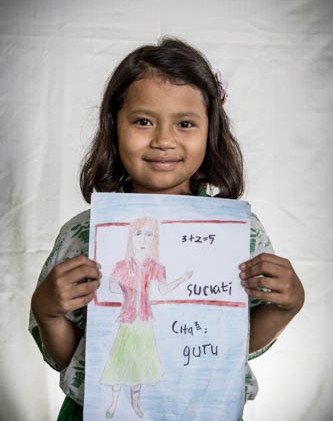 3+2=5
suciati
Cita²:
guru